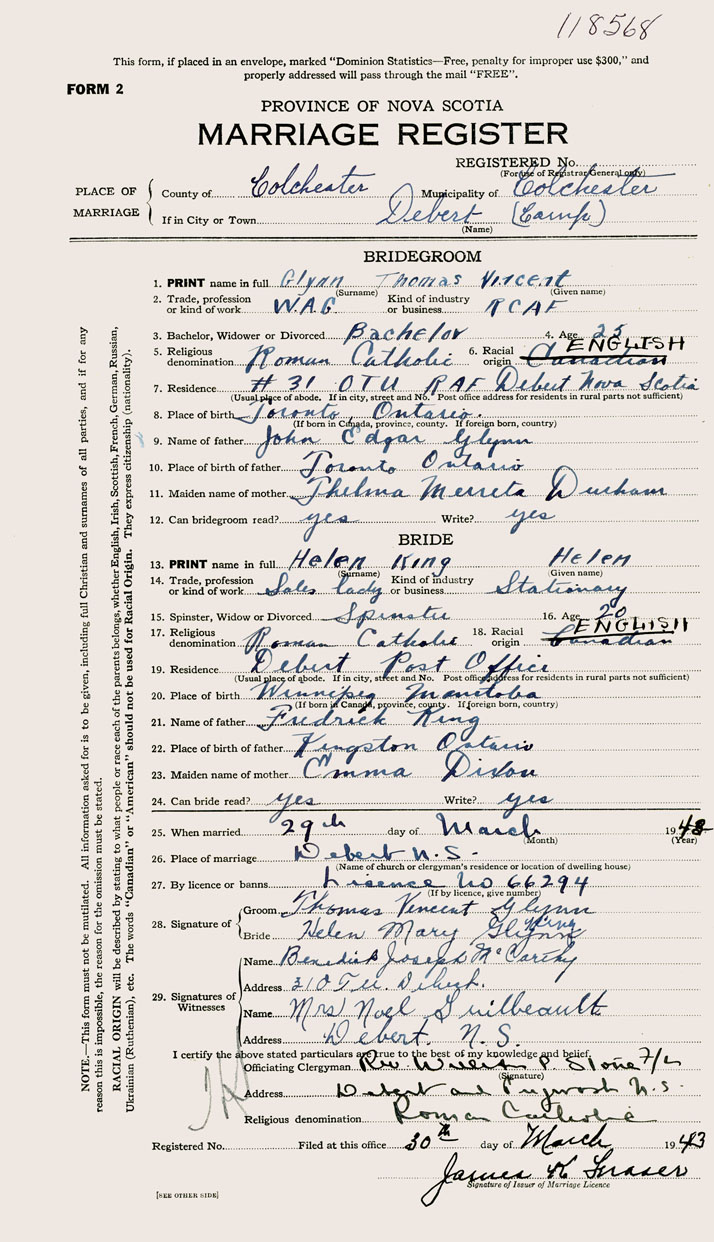 118568
This form, if placed in an envelope, marked "Dominion Statistics—Free, penalty for improper use $300," and
properly addressed will pass through the mail "FREE".
FORM 2
PROVINCE OF NOVA SCOTIA
MARRIAGE REGISTER
REGISTERED No.
(For use of Registrar General only)
PLACE OF MARRIAGE
County of Colchester Municipality of Colchester
If in City or Town Debert (Camp)
(Name)
BRIDEGROOM
1. PRINT name in full Glynn Thomas Vincent
(Surname) (Given name)
2. Trade, profession or kind of work W.A.G Kind of industry or business RCAF
3. Bachelor, Widower or Divorced Bachelor 4. Age 25
5. Religious denomination Roman Catholic 6. Racial origin Canadian ENGLISH
7. Residence # 31 OTU RAF Debert Nova Scotia
(Usual place of abode. If in city, street and No. Post office address for residents in rural parts not sufficient)
8. Place of birth Toronto, Ontario.
(If born in Canada, province, county. If foreign born, country)
9. Name of father John Edgar Glynn
10. Place of birth of father Toronto Ontario
11. Maiden name of mother Thelma Merreta Durham
12. Can bridegroom read? yes Write? yes
BRIDE
13. PRINT name in full Helen King Helen
(Surname) (Given name)
14. Trade, profession or kind of work Sales lady Kind of industry or business Stationary
15. Spinster, Widow or Divorced Spinster 16. Age 20
17. Religious denomination Roman Catholic 18. Racial origin Canadian ENGLISH
19. Residence Debert Post Office
(Usual place of abode. If in city, street and No. Post office address for residents in rural parts not sufficient)
20. Place of birth Winnipeg Manitoba
(If born in Canada, province, county. If foreign born, country)
21. Name of father Fredrick King
22. Place of birth of father Kingston Ontario
23. Maiden name of mother Emma Dixon
24. Can bride read? yes Write? yes
25. When married 29th day of March 1943
(Month) (Year)
26. Place of marriage Debert N.S.
(Name of church or clergyman's residence or location of dwelling house)
27. By licence or banns Lisence No 66294
(If by licence, give number)
28. Signature of
Groom Thomas Vincent Glynn
Bride Helen Mary Glynn King
29. Signatures of Witnesses
Name Benedict Joseph McCarthy
Address 31 O.T.U. Debert.
Name Mrs Noel Guilbeault
Address Debert. N.S.
I certify the above stated particulars are true to the best of my knowledge and belief.
Officiating Clergyman Rev. William P. Stone F/L
(Signature)
Address Debert and Pugwash N.S.
Religious denomination Roman Catholic
Registered No. Filed at this office 30th day of March 1943
James K Fraser
Signature of Issuer of Marriage Licence
[SEE OTHER SIDE]
NOTE.—This form must not be mutilated. All information asked for is to be given, including full Christian and surnames of all parties, and if for any
reason this is impossible, the reason for the omission must be stated.
RACIAL ORIGIN will be described by stating to what people or race each of the parents belongs, whether English, Irish, Scottish, French, German, Russian,
Ukrainian (Ruthenian), etc. The words "Canadian" or "American" should not be used for Racial Origin. They express citizenship (nationality).